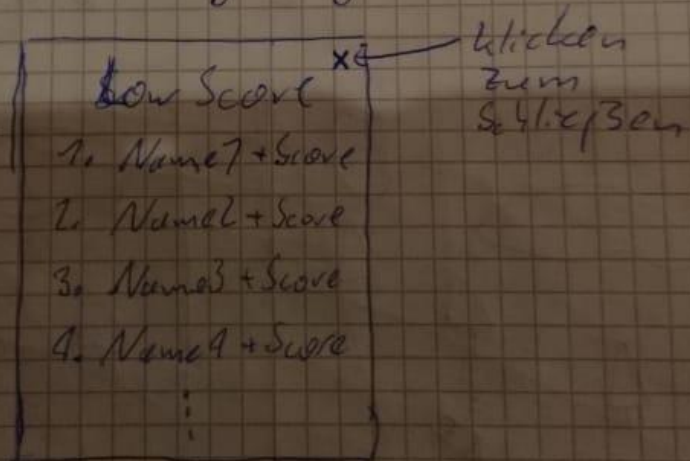 x
klicken
zum
Schließen
Low Score
1. Name1 + Score
2. Name2 + Score
3. Name3 + Score
4. Name4 + Score